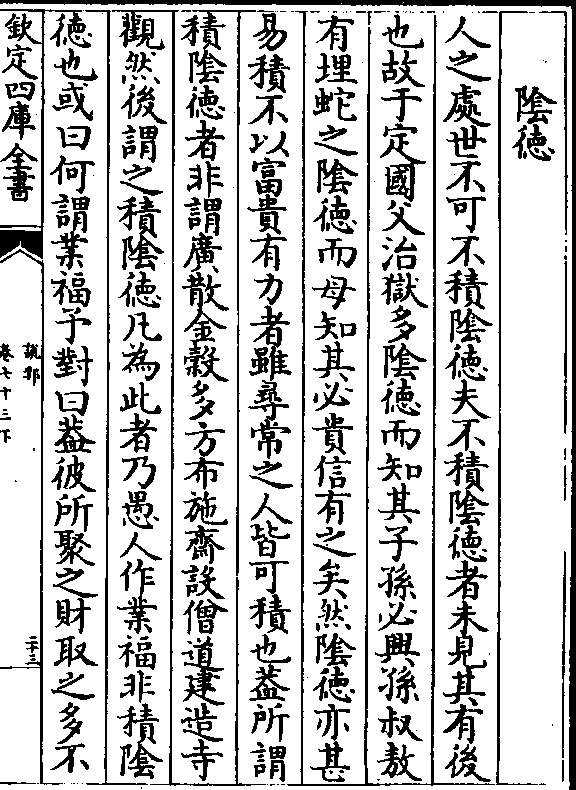 陰徳
人之處世不可不積陰徳夫不積陰徳者未見其有後
也故于定國父治獄多陰徳而知其子孫必興孫叔敖
有埋蛇之陰徳而母知其必貴信有之矣然陰徳亦甚
易積不以富貴有力者雖尋常之人皆可積也葢所謂
積陰徳者非謂廣散金穀多方布施齋設僧道建造寺
觀然後謂之積陰徳凡為此者乃愚人作業福非積陰
徳也或曰何謂業福予對曰葢彼所聚之財取之多不
欽定四庫全書
説郛
卷七十三下
二十三